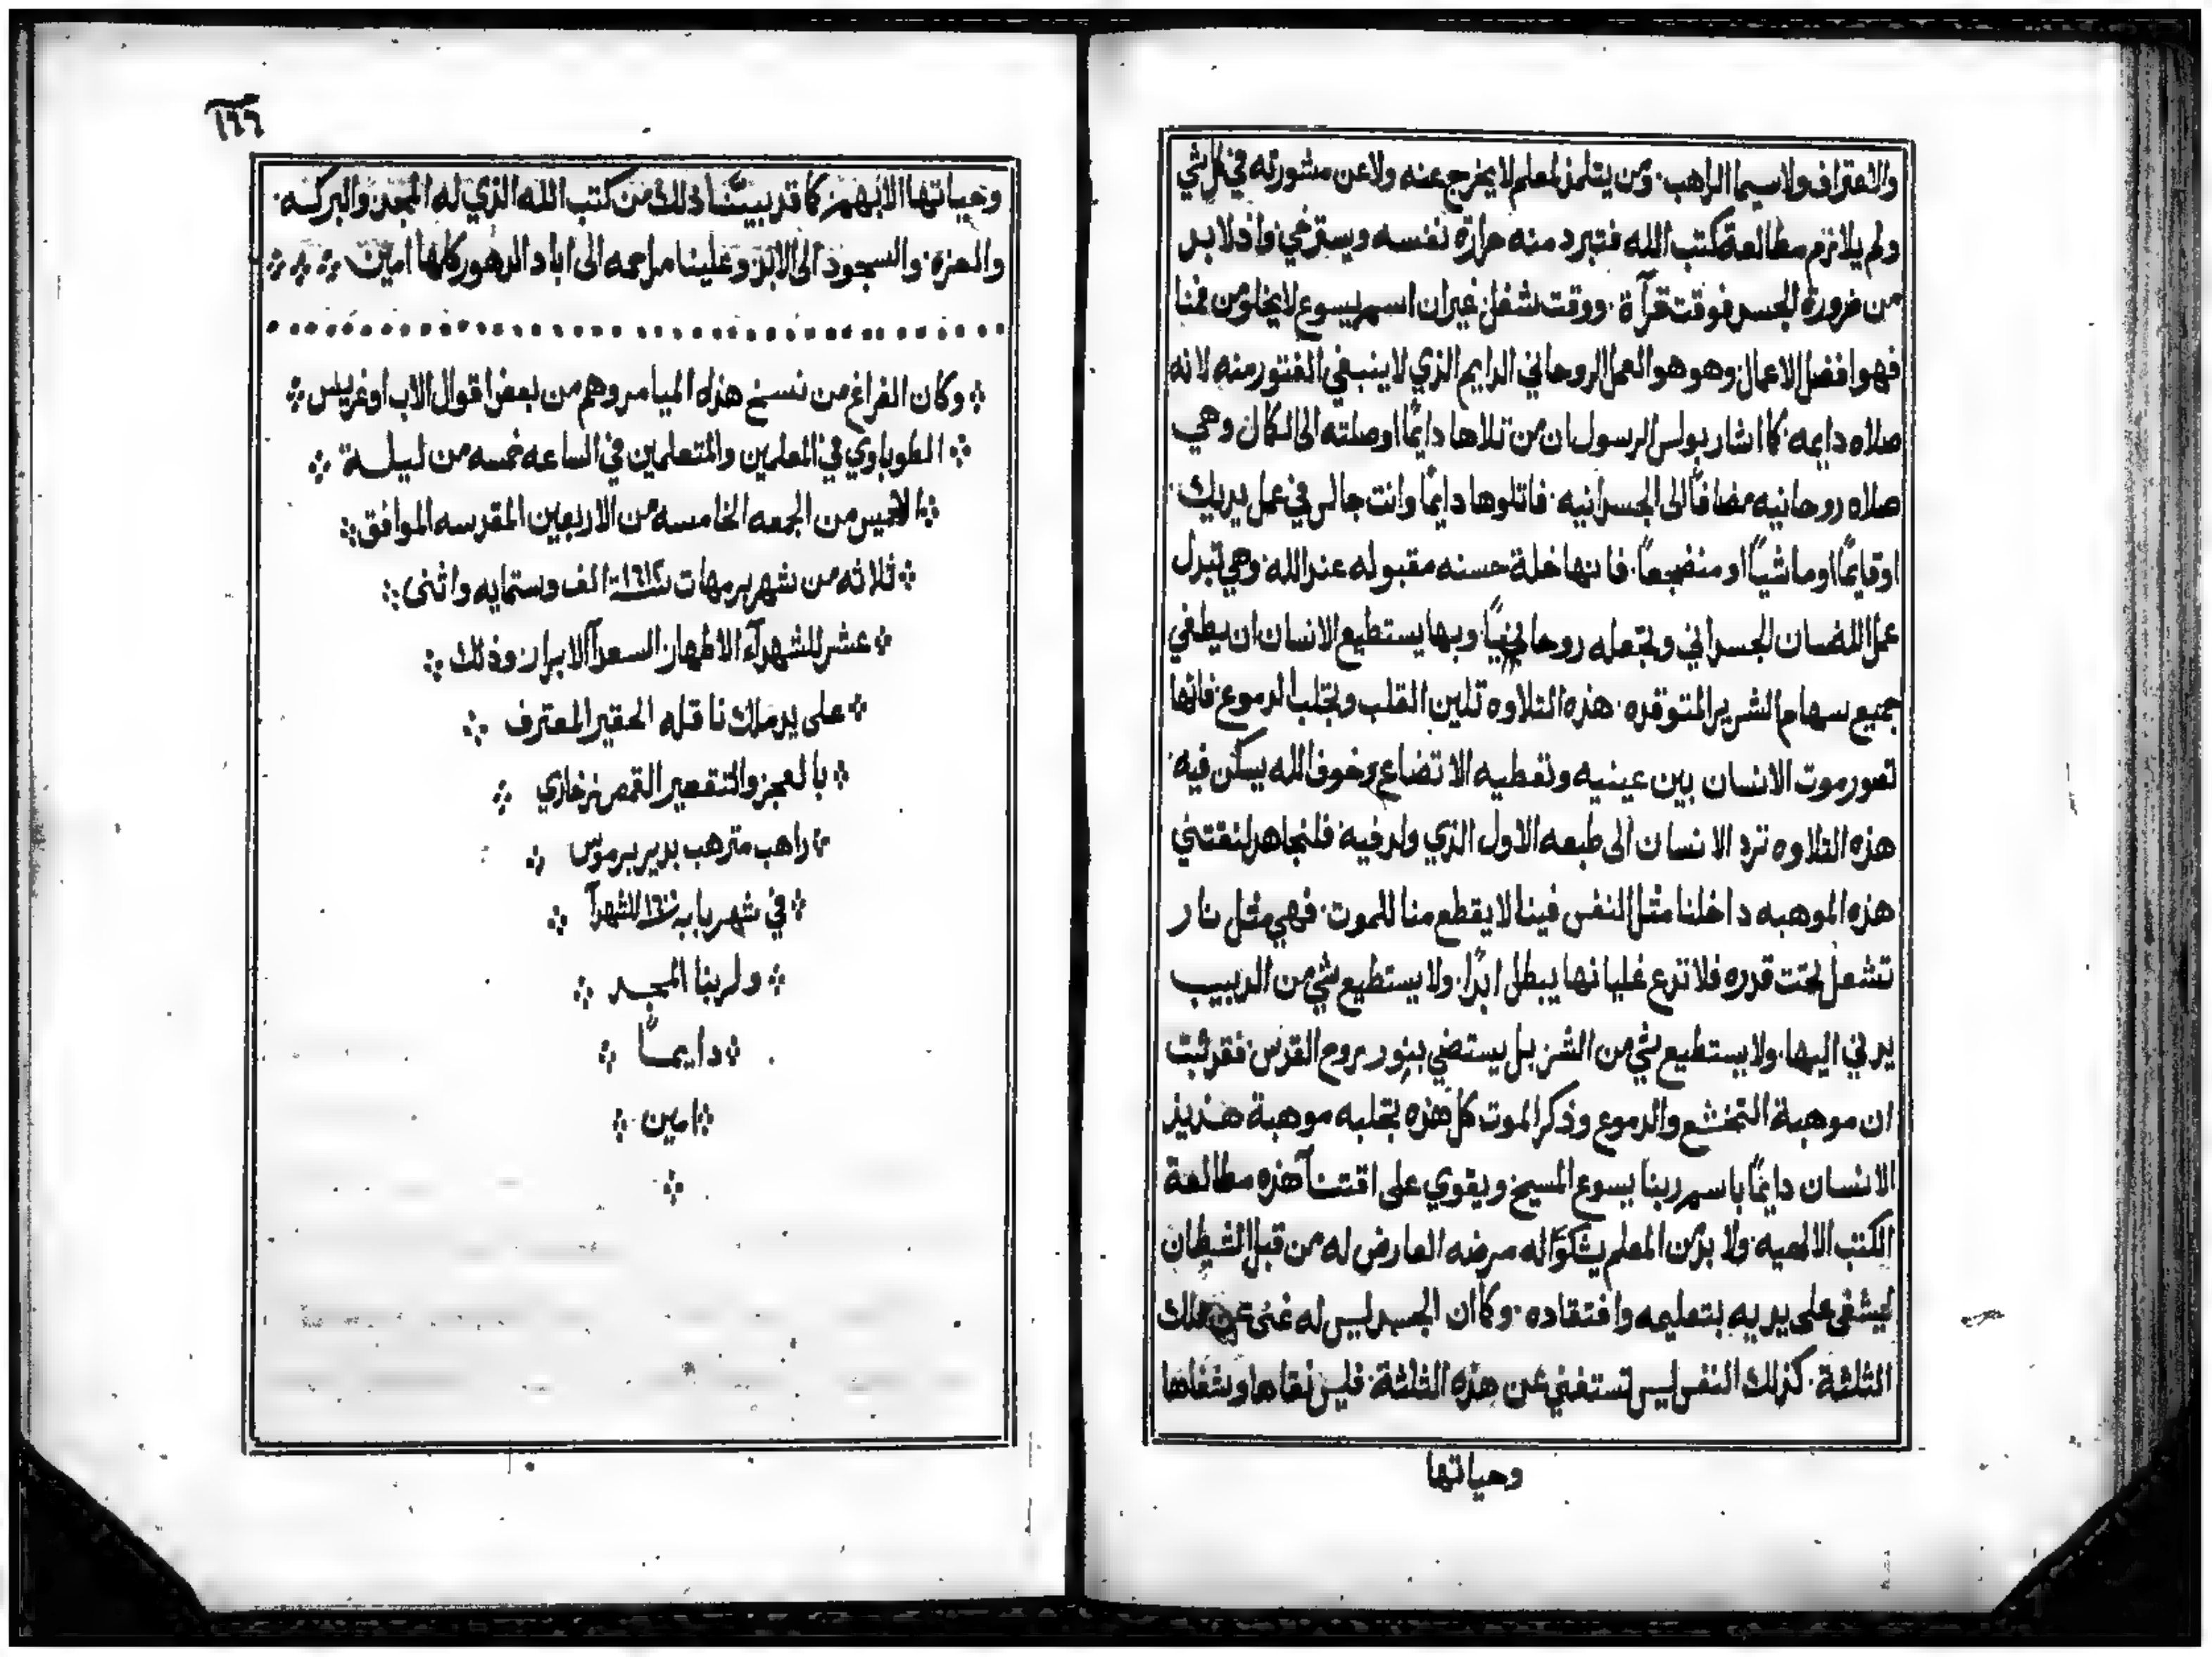 والاعتراف ولاسيما الراهب. ومن يتلمذ لمعلم لا يخرج عنه ولا عن مشورته في كل شي
ولم يلازم مطالعة كتب الله فتبرد منه حرارة نفسه ويسترخي. واذ لا بد
من ضرورة الجسد فوقت قرآة. ووقت شغل غير ان اسم يسوع لا يخلو من فمنا
فهو افضل الاعمال وهو هو العمل الروحاني الدايم الذي لا ينبغي الفتور منه لانه
صلاه دايمه. كما اشار بولس الرسول ان من تلاها دايمًا اوصلته الى الكمال وهي
صلاه روحانيه مضافًا الى الجسدانيه. فاتلوها دايمًا وانت جالس في عمل يديك.
او قايمًا او ماشيًا او منضجعًا. فانها خلة حسنه مقبوله عند الله. وهي تبدل
عمل اللسان الجسداني وتجعله روحانيًا. وبها يستطيع الانسان ان يطفي
جميع سهام الشرير المتوقده. هذه التلاوه تلين القلب وتجلب الدموع فانها
تصور موت الانسان بين عينيه وتعطيه الاتضاع وخوف الله يسكن فيه.
هذه التلاوه ترد الانسان الى طبعه الاول الذي ولد فيه. فلنجاهد لنقتني
هذه الموهبه داخلنا مثل النفس فينا لا يقطع منا للموت. فهي مثل نار
تشعل تحت قدره فلا تدع غليانها يبطل ابدًا. ولا يستطيع شي من الدبيب
يدني اليها. ولا يستطيع شي من الشر بل يستضي بنور روح القدس. فقد ثبت
ان موهبة التخشع والدموع وذكر الموت كل هذه تجلبه موهبة هذيذ
الانسان دايمًا باسم ربنا يسوع المسيح ويقوي على اقتنآ هذه مطالعة
الكتب الالهيه. ولا بد من المعلم يشكوا له مرضه العارض له من قبل الشيطان
ليشفى على يديه بتعليمه وافتقاده. وكما ان الجسد ليس له غنى عن تلك
الثلثة. كذلك النفس ليس تستغني عن هذه الثلثة. فليس نقاها وشفاها
وحياتها
١٦٦
وحياتها الا بهم. كما قد بيّنا ذلك من كتب الله الذي له المجد والبركه.
والعزه. والسجود الى الابد وعلينا مراحمه الى اباد الدهور كلها امين
وكان الفراغ من نسخ هذه الميامر وهم من بعض اقوال الاب اوغريس
الطوباوي في المعلمين والمتعلمين في الساعه خمسه من ليلة
الخميس من الجمعه الخامسه من الاربعين المقدسه الموافق
ثلاثه من شهر برمهات سنة ١٦١٢ الف وستمايه واثنى
عشر للشهدآء الاطهار. السعدآ الابرار. وذلك
على يد مالك ناقله الحقير المعترف
بالعجز والتقصير القمص
راهب مترهب بدير برموس
في شهر بابه للشهدآ
ولربنا المجد
دايمًا
امين